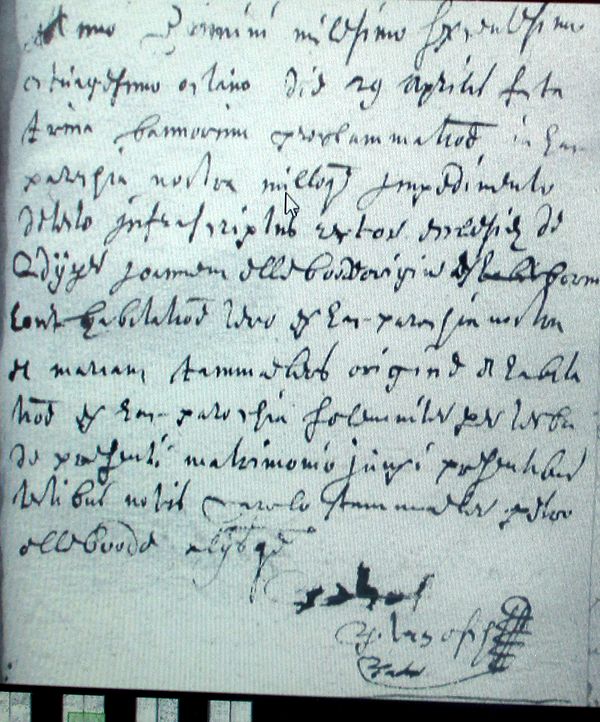 Anno Domini milesimo sexentesimo
octuagesimo octavo die 29 aprilis facta
trina bannorum proclammatioē in hac
parochia nostra nulloq impedimento
detecto infrascriptus rector ecclesiæ de
joannem ellebode origine ex
habitatioē vero ex hac parochia nostra
et mariam stammelers origine et habita
tioē ex hac parochia solemniter per verba
de presenti matrimonio junxi presentibus
testibus notis Carolo stammeler petro
ellebode alijsq